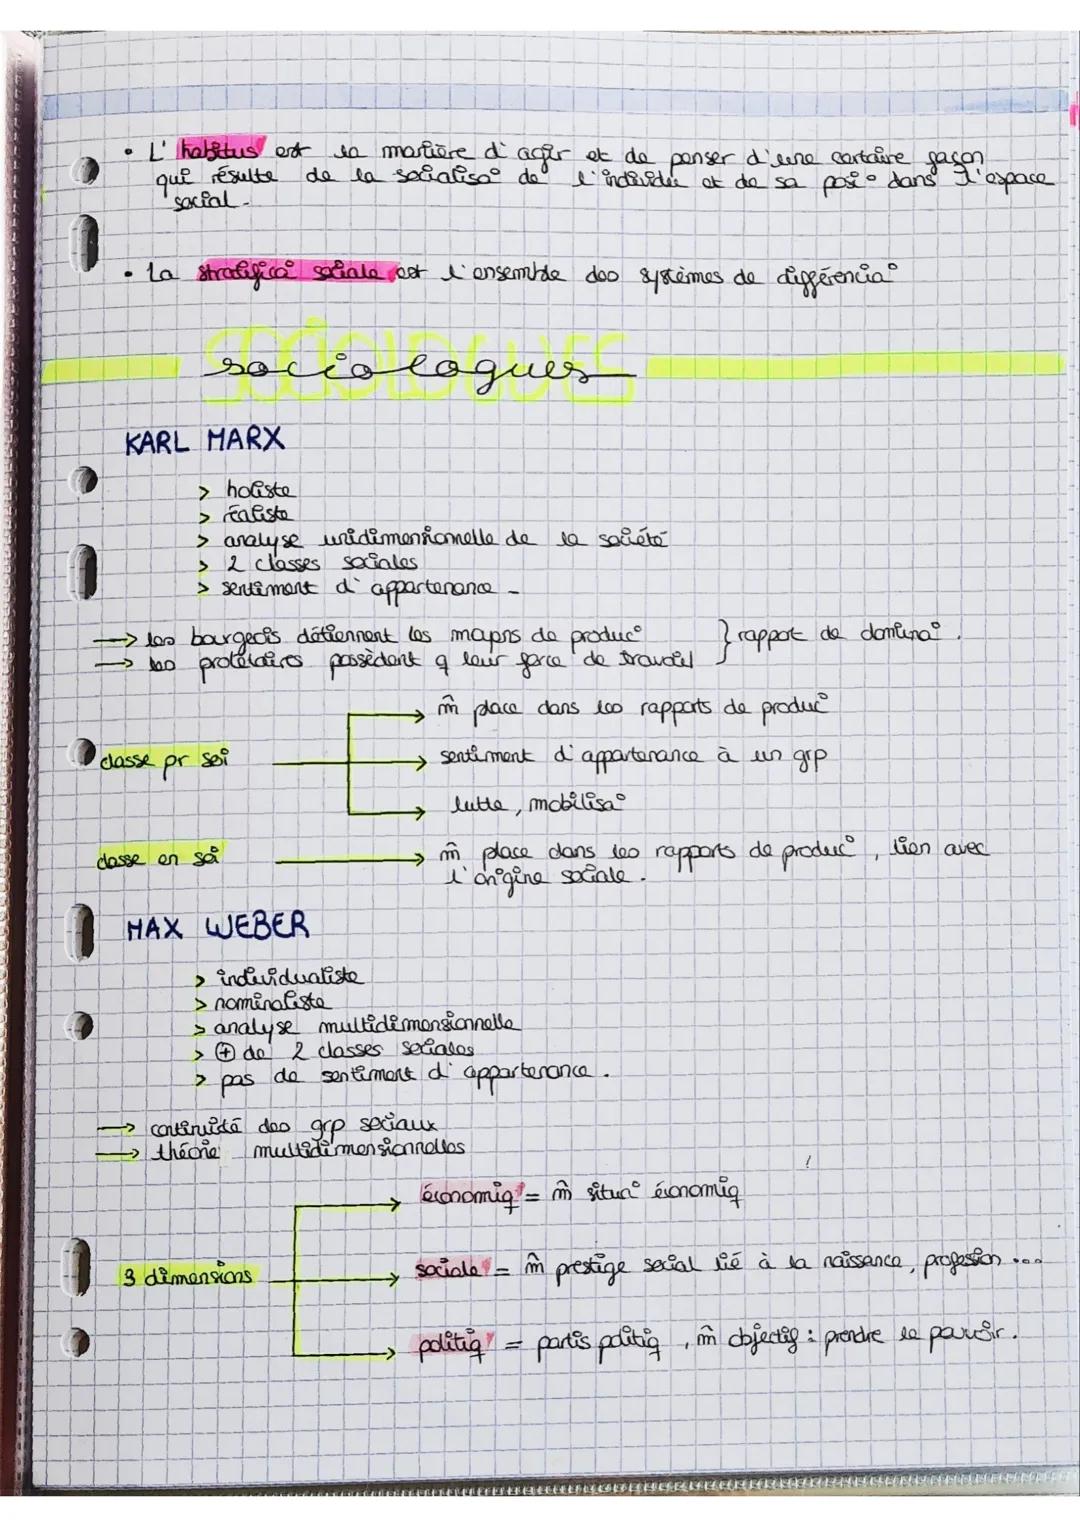 • L'habitus est la manière d'agir et de penser d'une certaine façon
qui résulte de la socialisa° de l'individu et de sa posi° dans l'espace
social.
• La stratifica° sociale est l'ensemble des systèmes de différencia°
SOCIOLOGUES
sociologues
KARL MARX
> holiste
> réaliste
> analyse unidimensionnelle de la société
> 2 classes sociales
> sentiment d'appartenance.
→ les bourgeois détiennent les moyens de produc° } rapport de domina°.
→ les prolétaires possèdent q leur force de travail
m̂ place dans les rapports de produc°
classe pr soi → sentiment d'appartenance à un grp
lutte, mobilisa°
classe en soi → m̂ place dans les rapports de produc°, lien avec
l'origine sociale.
MAX WEBER
> individualiste
> nominaliste
> analyse multidimensionnelle
> ⊕ de 2 classes sociales
> pas de sentiment d'appartenance.
→ continuité des grp sociaux
→ théorie multidimensionnelles
économiq = m̂ situa° économiq
3 dimensions → sociale = m̂ prestige social lié à la naissance, profession ...
politiq = partis politiq, m̂ objectif : prendre le pouvoir.